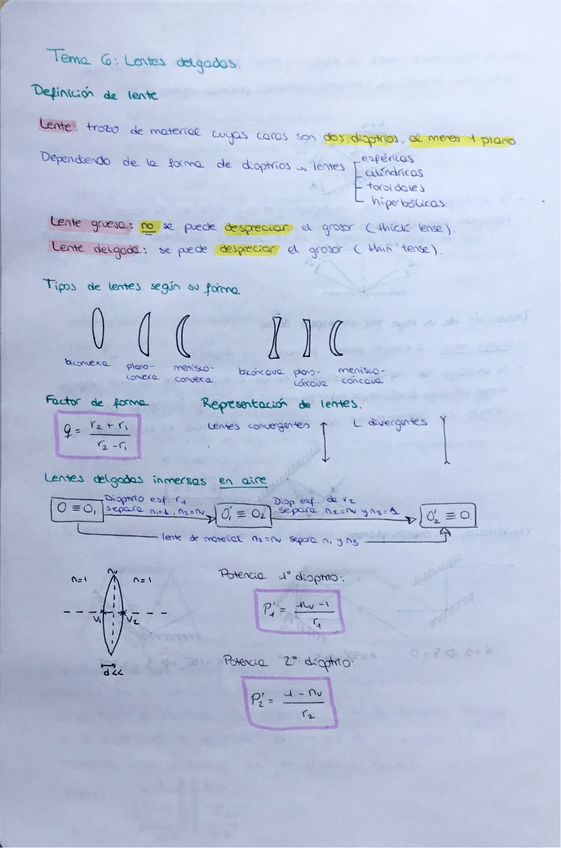 Tema 6: Lentes delgadas.
Definición de lente
Lente: trozo de material cuyas caras son dos dioptrios, al menos 1 plano.
Dependiendo de la forma de dioptrios → lentes
esféricas
cilíndricas
toroidales
hiperbólicas
Lente gruesa: no se puede despreciar el grosor (thick lense).
Lente delgada: se puede despreciar el grosor (thin lense).
Tipos de lentes según su forma
biconvexa
plano-convexa
menisco-convexa
bicóncava
plano-cóncava
menisco-cóncava
Factor de forma
q = (r2 + r1) / (r2 - r1)
Representación de lentes.
Lentes convergentes
L divergentes
Lentes delgadas inmersas en aire
O ≡ O1
Dioptrio esf. r1
separa n1=1, n2=nv
O1' ≡ O2
Diop esf. de r2
separa n2=nv y n3=1
O2' ≡ O
lente de material n2=nv separa n1 y n3
n=1
nv
n=1
V1
V2
d<<
Potencia 1º dioptrio:
P1' = (nv - 1) / r1
Potencia 2º dioptrio:
P2' = (1 - nv) / r2